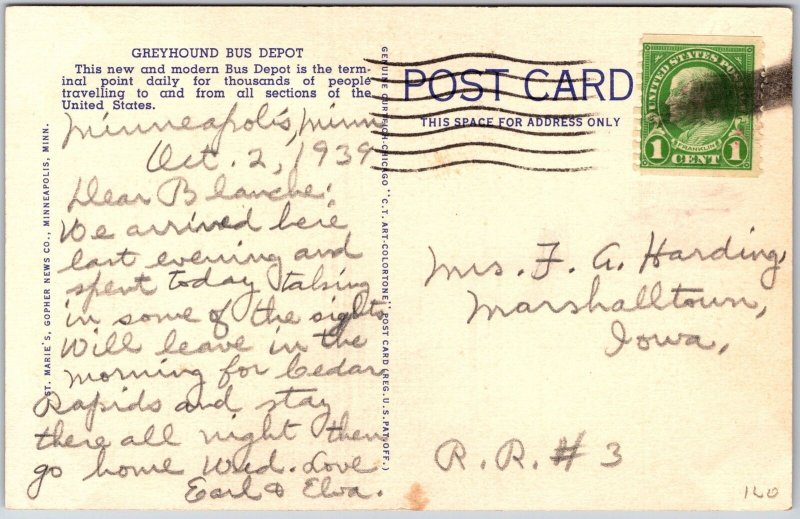 GREYHOUND BUS DEPOT
This new and modern Bus Depot is the term-
inal point daily for thousands of people
travelling to and from all sections of the
United States.
Minneapolis, Minn
Oct. 2, 1939
Dear Blanche:
We arrived here
last evening and
spent today taking
in some of the sights
Will leave in the
morning for Cedar
Rapids and stay
there all night then
go home Wed. Love
Earl & Elva.
ST. MARIE'S, GOPHER NEWS CO., MINNEAPOLIS, MINN.
GENUINE CURTEICH-CHICAGO "C.T. ART-COLORTONE" POST CARD (REG. U.S. PAT. OFF.)
POST CARD
THIS SPACE FOR ADDRESS ONLY
UNITED STATES POSTAGE
FRANKLIN
1 CENT 1
Mrs. F. A. Harding,
Marshalltown,
Iowa,
R.R. # 3
120